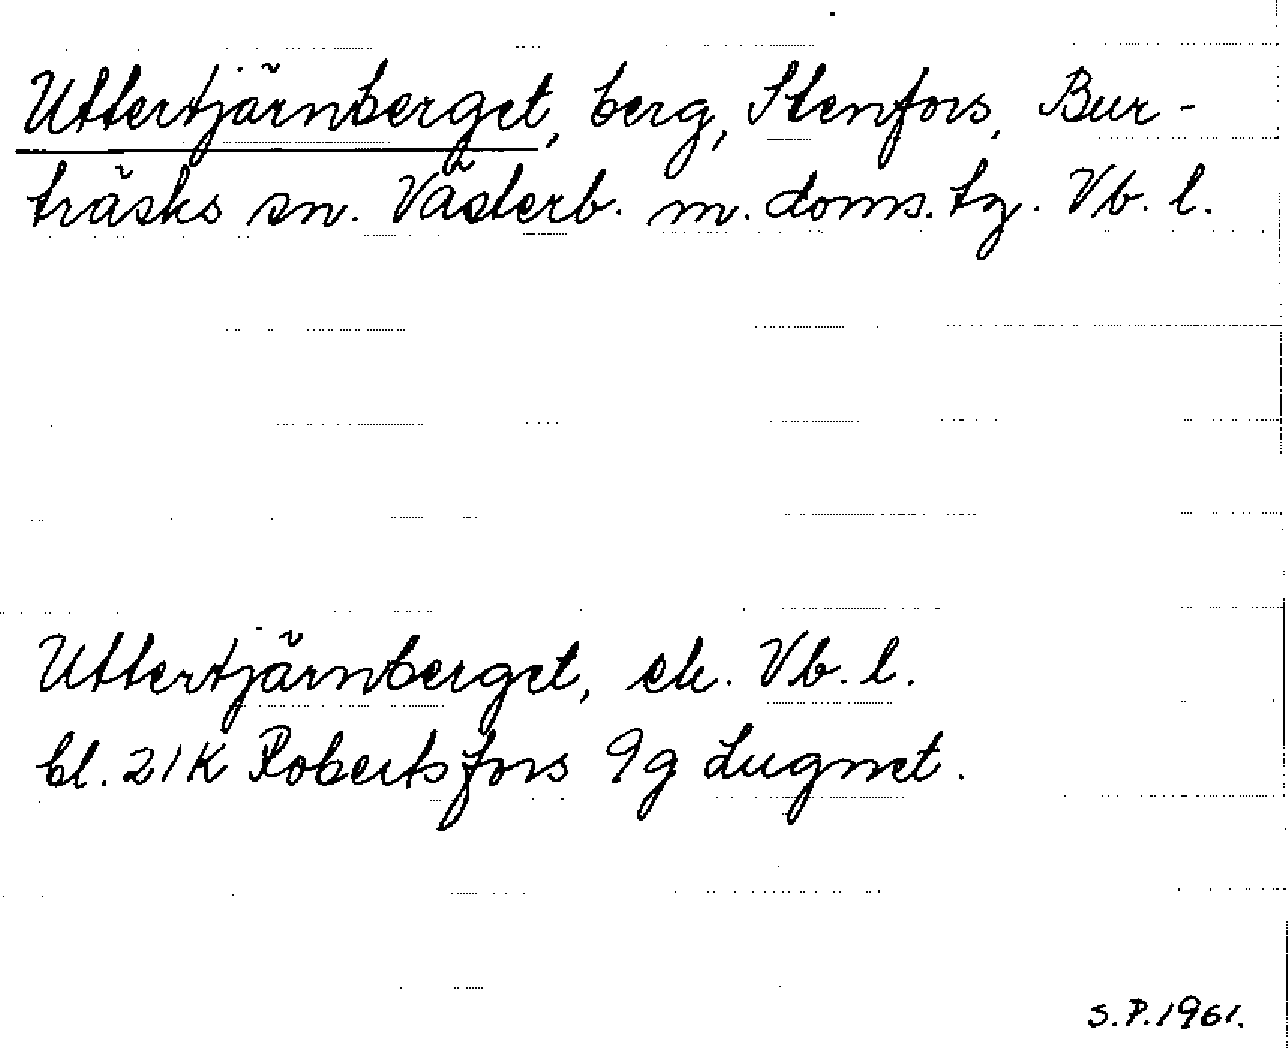 Uttertjärnberget, berg, Stenfors, Bur-
träsks sn. Västerb. m. doms. tg. Vb. l.
Uttertjärnberget, ek. Vb. l.
bl. 21K Robertsfors 9g Lugnet.
S.P.1961.